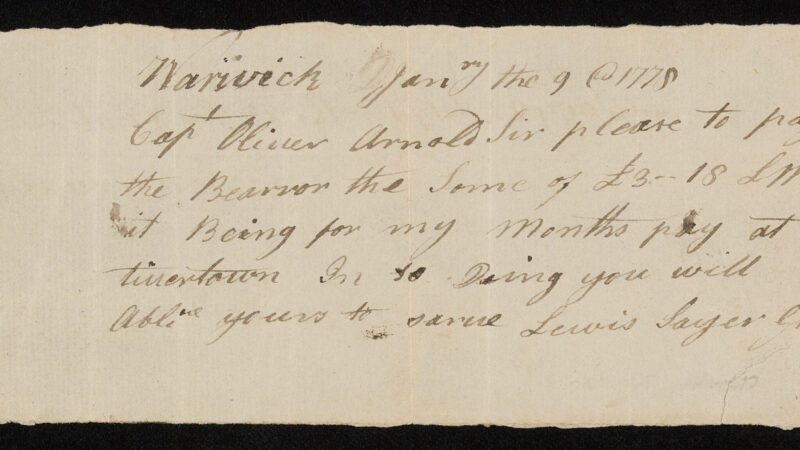 Warwick Janry the 9 @ 1778
Capt Oliver Arnold Sir please to pay
the Bearror the Some of £3--18 LM
it Being for my Months pay at
tivertown In so Doing you will
yours to sarve Lewis Sayer